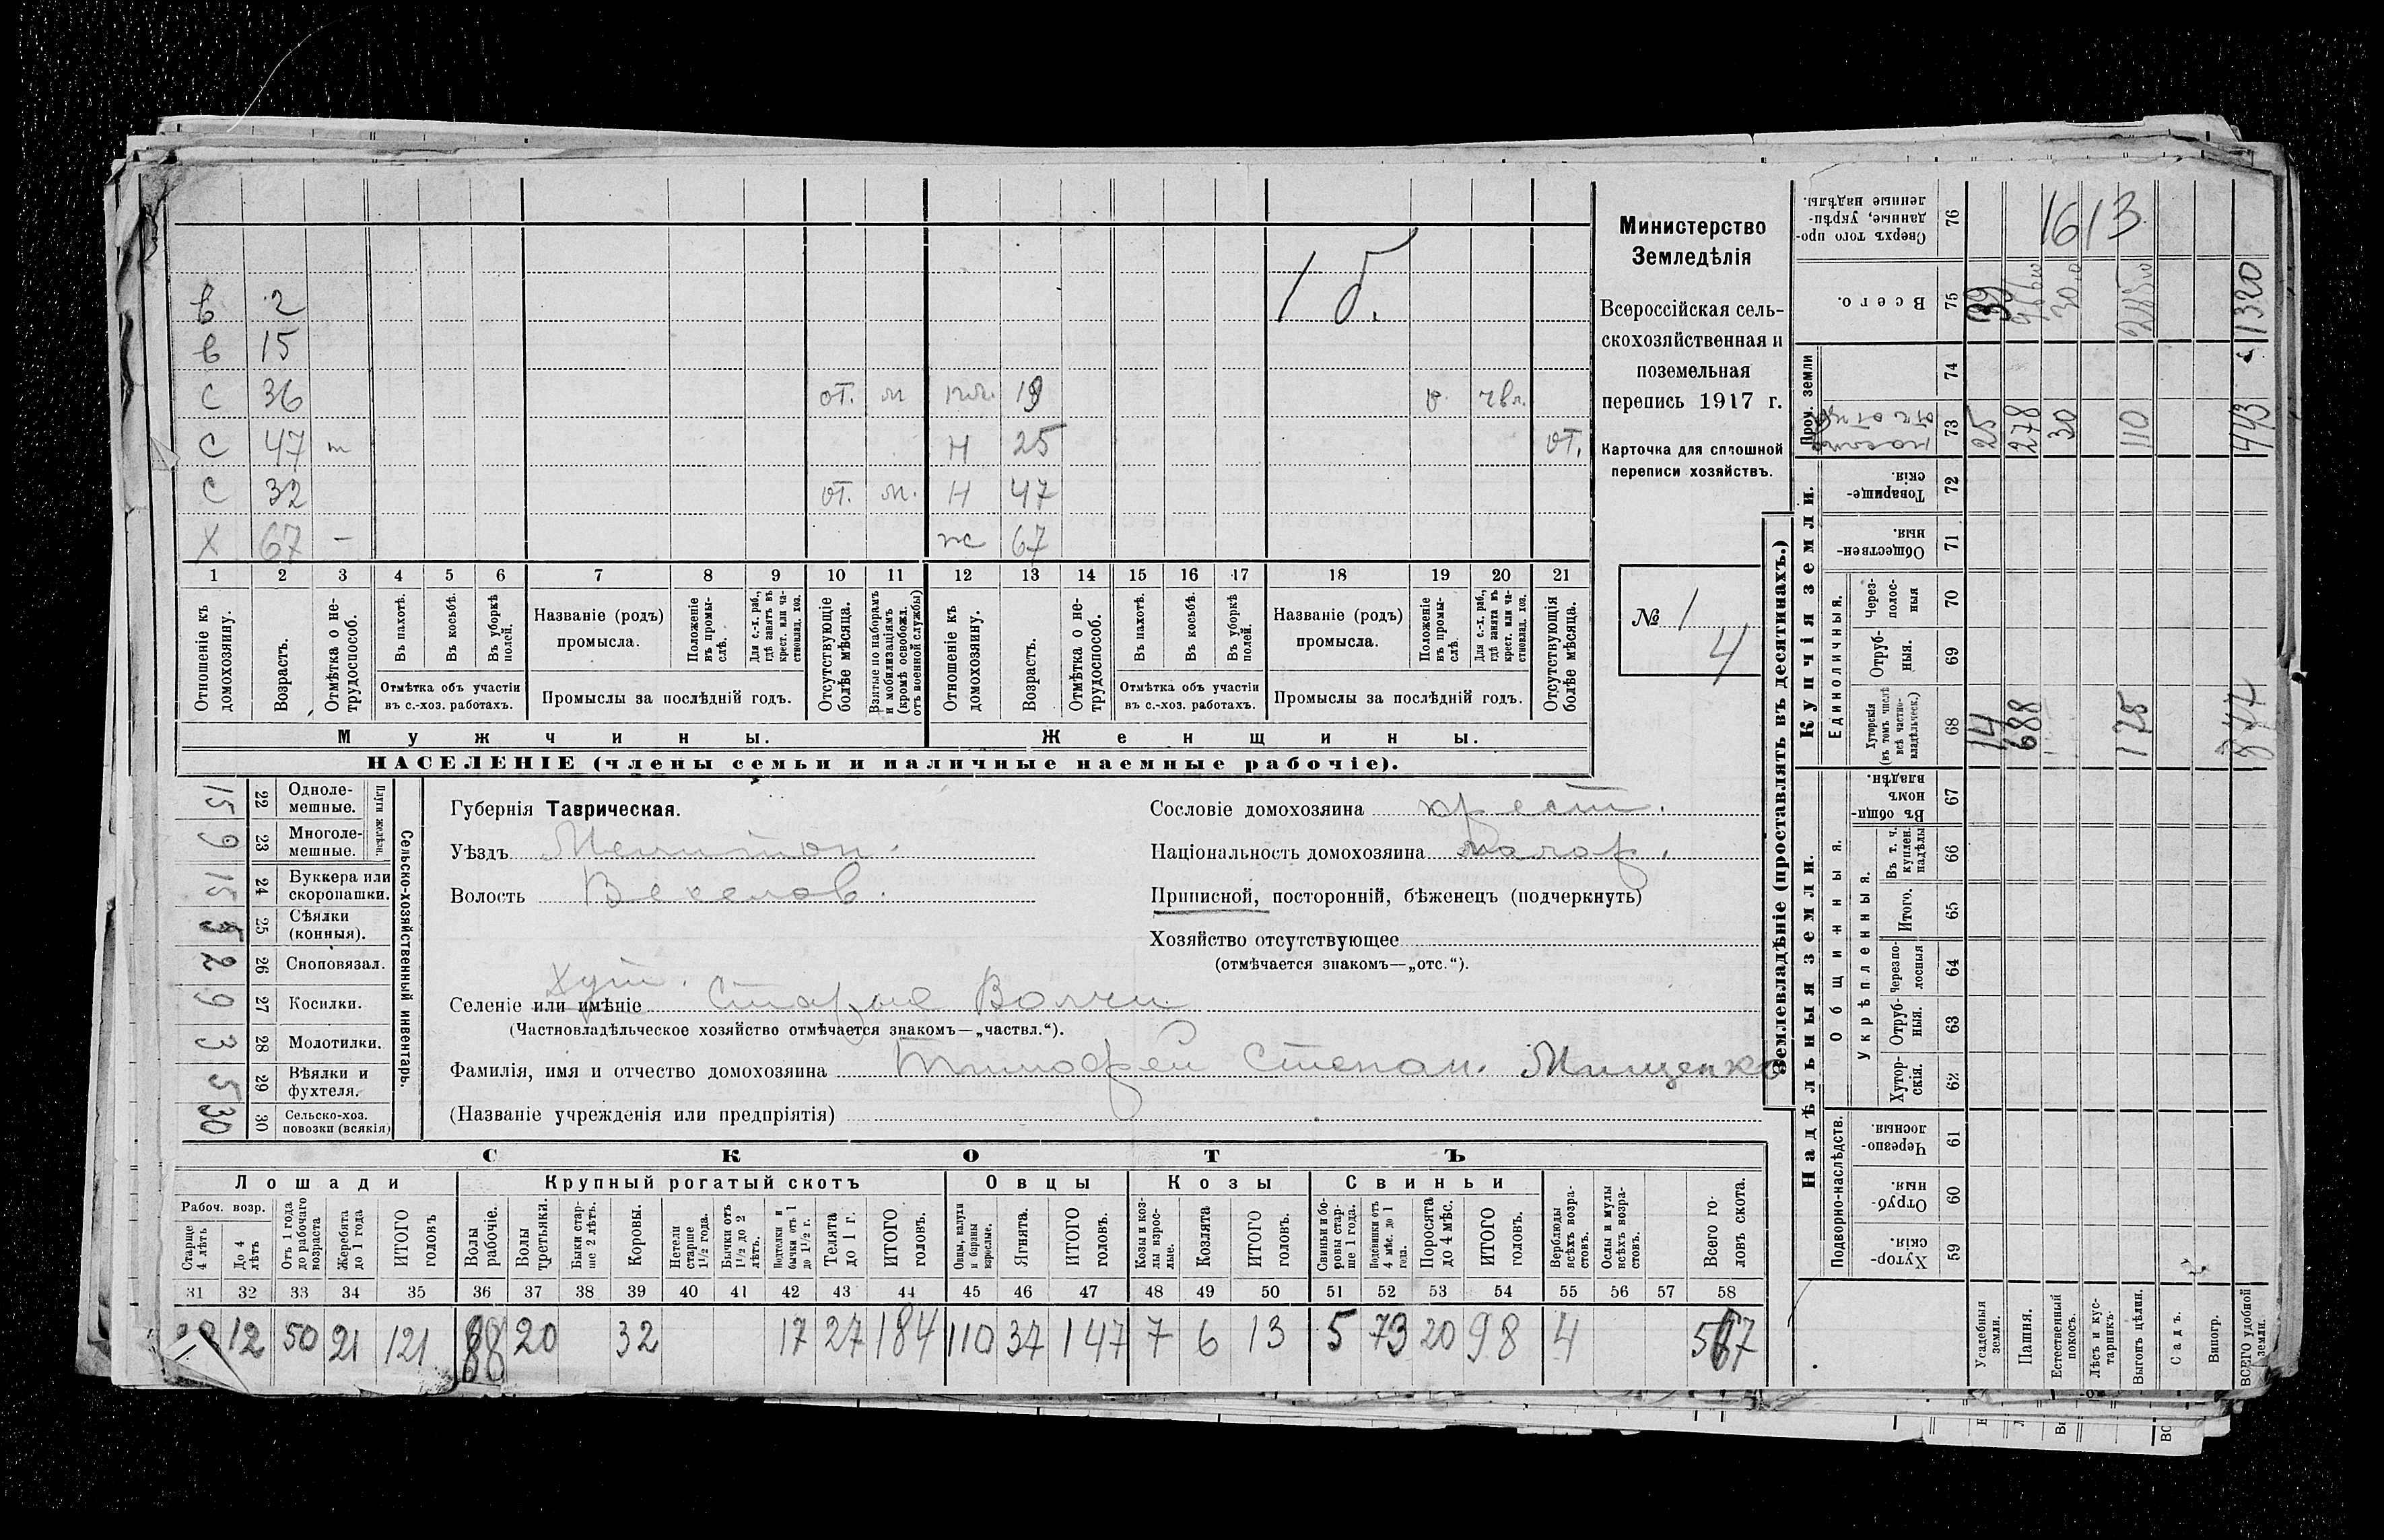 1 б.
в 2
в 15
с 36 от. м пл. 19
с 47 н 25 от.
с 32 от. м. н 47
х 67 — ж 67
1 2 3 4 5 6 7 8 9 10 11 12 13 14 15 16 17 18 19 20 21
Отношеніе къ домохозяину.
Возрастъ.
Отмѣтка о не-
трудоспособ.
Въ пахотѣ.
Въ косьбѣ.
Въ уборкѣ полей.
Отмѣтка объ участіи
въ с.-хоз. работахъ.
Названіе (родъ)
промысла.
Положеніе въ промы-
слѣ.
Для с.-х. раб.,
гдѣ занятъ въ
крест. или ча-
ствовлад. хоз.
Промыслы за послѣдній годъ.
Отсутствующіе
болѣе мѣсяца.
Взятые по наборамъ
и мобилизаціямъ
(кромѣ освобожд.
отъ военной службы)
Отношеніе къ
домохозяину.
Возрастъ.
Отмѣтка о не-
трудоспособ.
Въ пахотѣ.
Въ косьбѣ.
Въ уборкѣ
полей.
Отмѣтка объ участіи
въ с.-хоз. работахъ.
Названіе (родъ)
промысла.
Положеніе
въ промы-
слѣ.
Для с.-х. раб.,
гдѣ занята въ
крест. или ча-
ствовлад. хоз.
Промыслы за послѣдній годъ.
Отсутствующія
болѣе мѣсяца.
Мужчины.
Женщины.
НАСЕЛЕНІЕ (члены семьи и наличные наемные рабочіе).
Министерство
Земледѣлія
Всероссійская сель-
скохозяйственная и
поземельная
перепись 1917 г.
Карточка для сплошной
переписи хозяйствъ.
№ 1
4
15 22 Одноле-
мешные.
9 23 Многоле-
мешные.
Плуги желѣзн.
15 24 Буккера или
скоропашки.
25 Сѣялки
(конныя).
2 26 Сноповязал.
9 27 Косилки.
3 28 Молотилки.
5 29 Вѣялки и
фухтеля.
30 30 Сельско-хоз.
повозки (всякія)
Сельско-хозяйственный инвентарь.
Губернія Таврическая.
Уѣздъ Мелитоп.
Волость Веселов.
Хут.
Селеніе или имѣніе Старые Волчи
(Частновладѣльческое хозяйство отмѣчается знакомъ—„частвл.“).
Фамилія, имя и отчество домохозяина Тимофей Степан. Мищенко
(Названіе учрежденія или предпріятія)
Сословіе домохозяина крест.
Національность домохозяина малор.
Приписной, посторонній, бѣженецъ (подчеркнуть)
Хозяйство отсутствующее
(отмѣчается знакомъ—„отс.“).
СКОТЪ
Лошади
Крупный рогатый скотъ
Овцы
Козы
Свиньи
Рабоч. возр.
Старше
4 лѣтъ
До 4
лѣтъ
Отъ 1 года
до рабочаго
возраста
Жеребята
до 1 года
ИТОГО
головъ
Волы
рабочіе.
Волы
третьяки.
Быки стар-
ше 2 лѣтъ.
Коровы.
Нетели
старше
1½ года.
Бычки отъ
1½ до 2
лѣтъ.
Подтелки и
бычки отъ 1
до 1½ г.
Телята
до 1 г.
ИТОГО
головъ.
Овцы, валухи
и бараны
взрослые.
Ягнята.
ИТОГО
головъ.
Козы и коз-
лы взрос-
лые.
Козлята
ИТОГО
головъ.
Свиньи и бо-
ровы стар-
ше 1 года.
Подсвинки отъ
4 мѣс. до 1
года.
Поросята
до 4 мѣс.
ИТОГО
головъ.
Верблюды
всѣхъ возра-
стовъ.
Ослы и мулы
всѣхъ возра-
стовъ.
Всего го-
ловъ скота.
31 32 33 34 35 36 37 38 39 40 41 42 43 44 45 46 47 48 49 50 51 52 53 54 55 56 57 58
12 50 21 121 88 20 32 17 27 184 110 37 147 7 6 13 5 73 20 98 4 567
Землевладѣніе (проставлять въ десятинахъ.)
Надѣльныя земли.
Купчія земли.
Пром. земли
Подворно-наслѣдств.
Общинныя.
Укрѣпленныя.
Единоличныя.
Хутор-
скія. 59
Отруб-
ныя. 60
Черезпо-
лосныя. 61
Хутор-
скія. 62
Отруб-
ныя. 63
Черезпо-
лосныя 64
Итого. 65
Въ т. ч.
куплен.
надѣлы 66
Въ общин-
номъ
владѣн. 67
Хуторскія
(въ томъ числѣ
всѣ частно-
владѣльческ.) 68
Отруб-
ныя. 69
Через-
полос-
ныя 70
Обществен-
ныя. 71
Товарище-
скія 72
73
74
Всего. 75
Сверхъ того про-
данные, укрѣп-
ленные надѣлы. 76
1613
Усадебная
земли. 14 25 39
Пашня. 688 278
Естественный
покосъ. 30 30
Лѣсъ и кус-
тарникъ.
Выгонъ цѣлин. 175 110 285
Садъ.
Виногр.
ВСЕГО удобной
земли. 877 443 1320